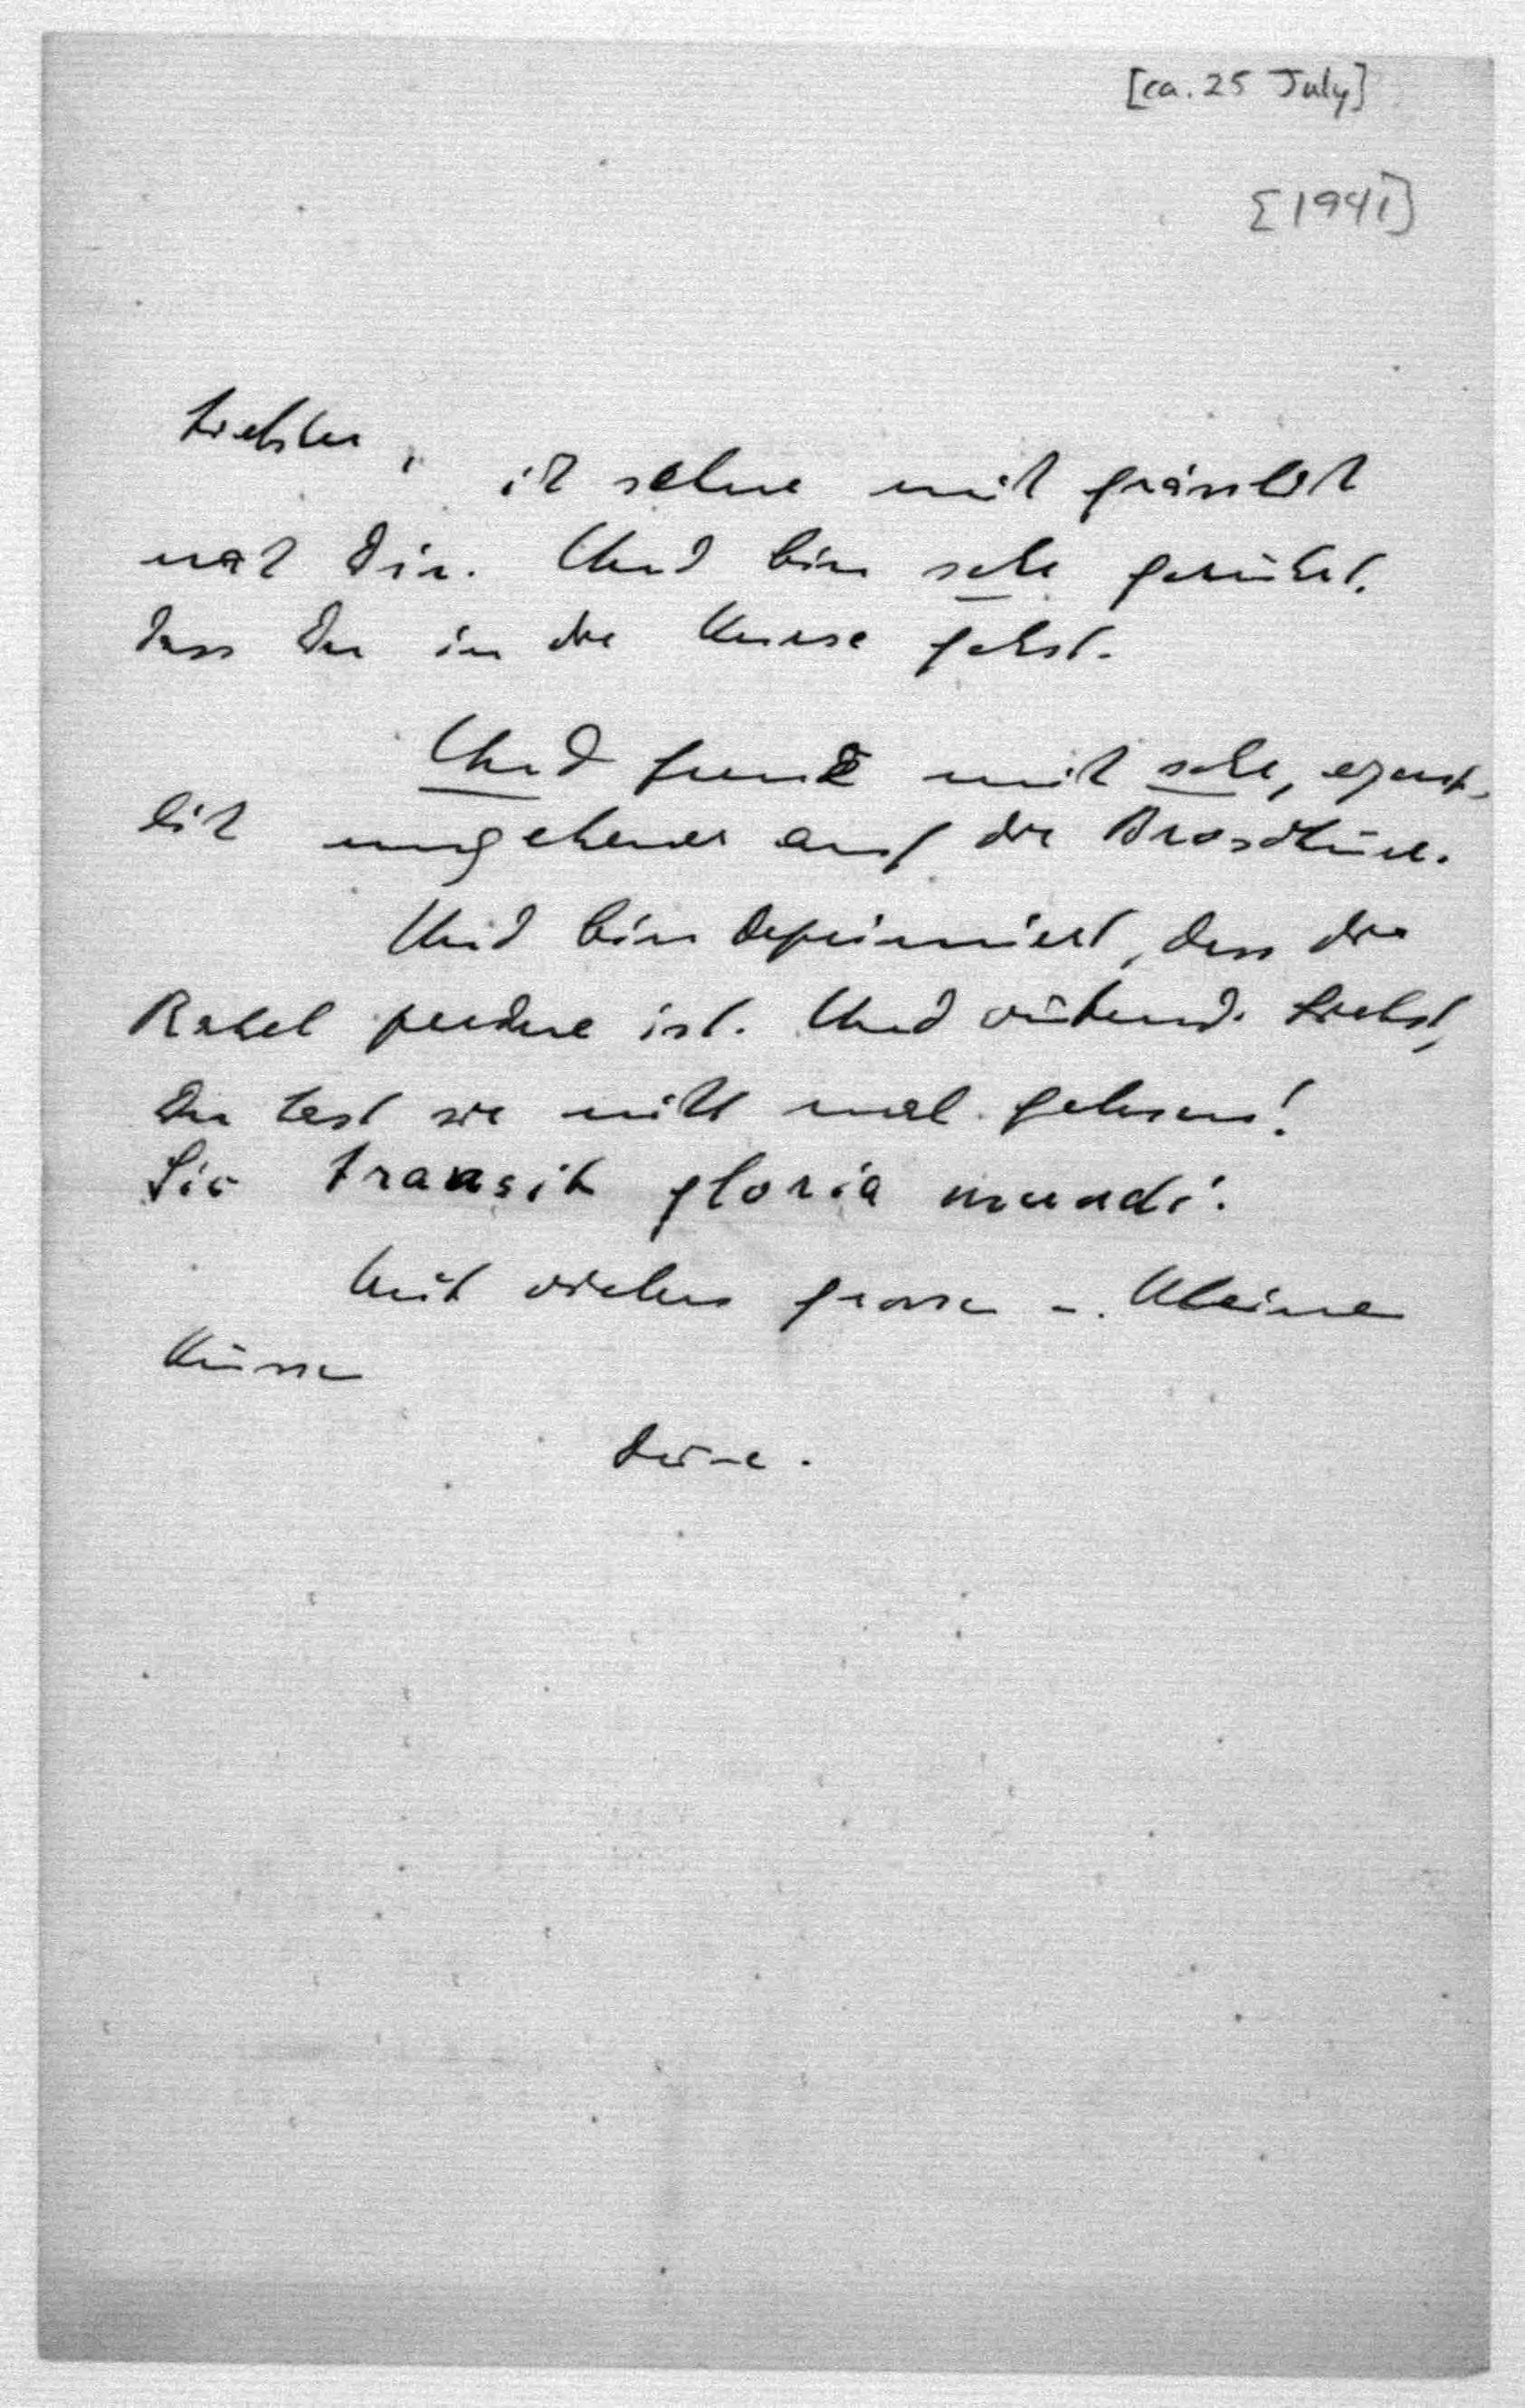 [ca. 25 July]
[1941]
Liebster,
ich sehne mich grässlich
nach Dir. Und bin sehr gerührt,
dass Du in die Kurse gehst.
Und freue mich sehr, eigent-
lich ungeheuer auf die Broschüre.
Und bin deprimiert, dass die
Rahel perdue ist. Und wütend. Liebst,
Du hast sie nicht mal gelesen!
Sic transit gloria mundi.
Mit vielen grossen u. kleinen
Küssen
Deine.